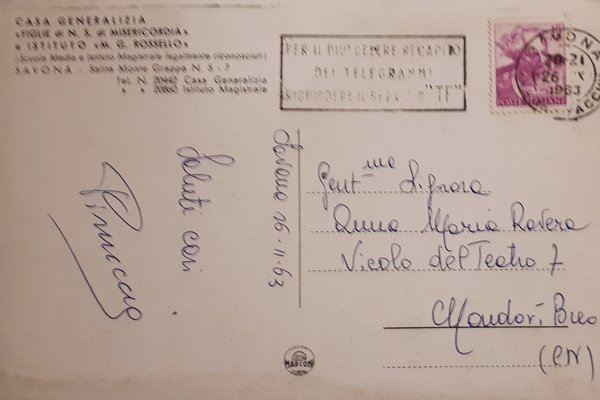 CASA GENERALIZIA
«FIGLIE di N. S. di MISERICORDIA»
e ISTITUTO «M. G. ROSSELLO»
(Scuola Media e Istituto Magistrale legalmente riconosciuti)
SAVONA - Salita Monte Grappa N. 5 - 7
Tel. N. 20642 Casa Generalizia
» » 20660 Istituto Magistrale
PER IL PIU' CELERE RECAPITO
DEI TELEGRAMMI
RICHIEDERE IL SERVIZIO "TF"
20-21
26 X
1963
POSTE ITALIANE
Savona 26-11-63
Saluti cari
Pinuccia
Gent.ma Signora
Anna Maria Ravera
Vicolo del Teatro 7
Mondovì Breo
(CN)
MARCONI
GENOVA